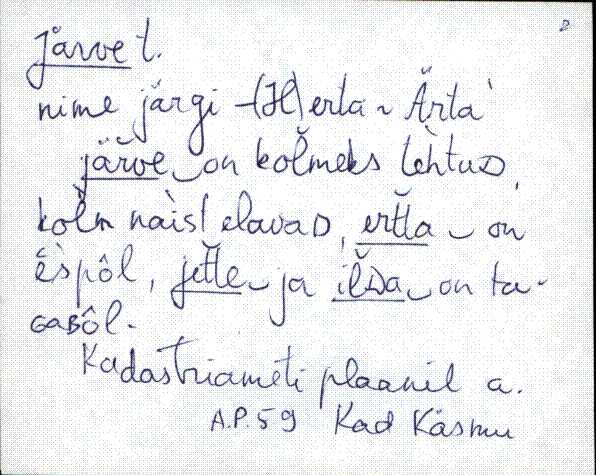 järve t.
nime järgi –(H)erta ~ Ärta'
järve on kolmeks tèhtuD,
kolm naist elavaD, ertta on
ëspôl, jette ja ilDa on ta-
GaBôl.
Kadastriameti plaanil a.
A.P. 59 Kad Käsmu